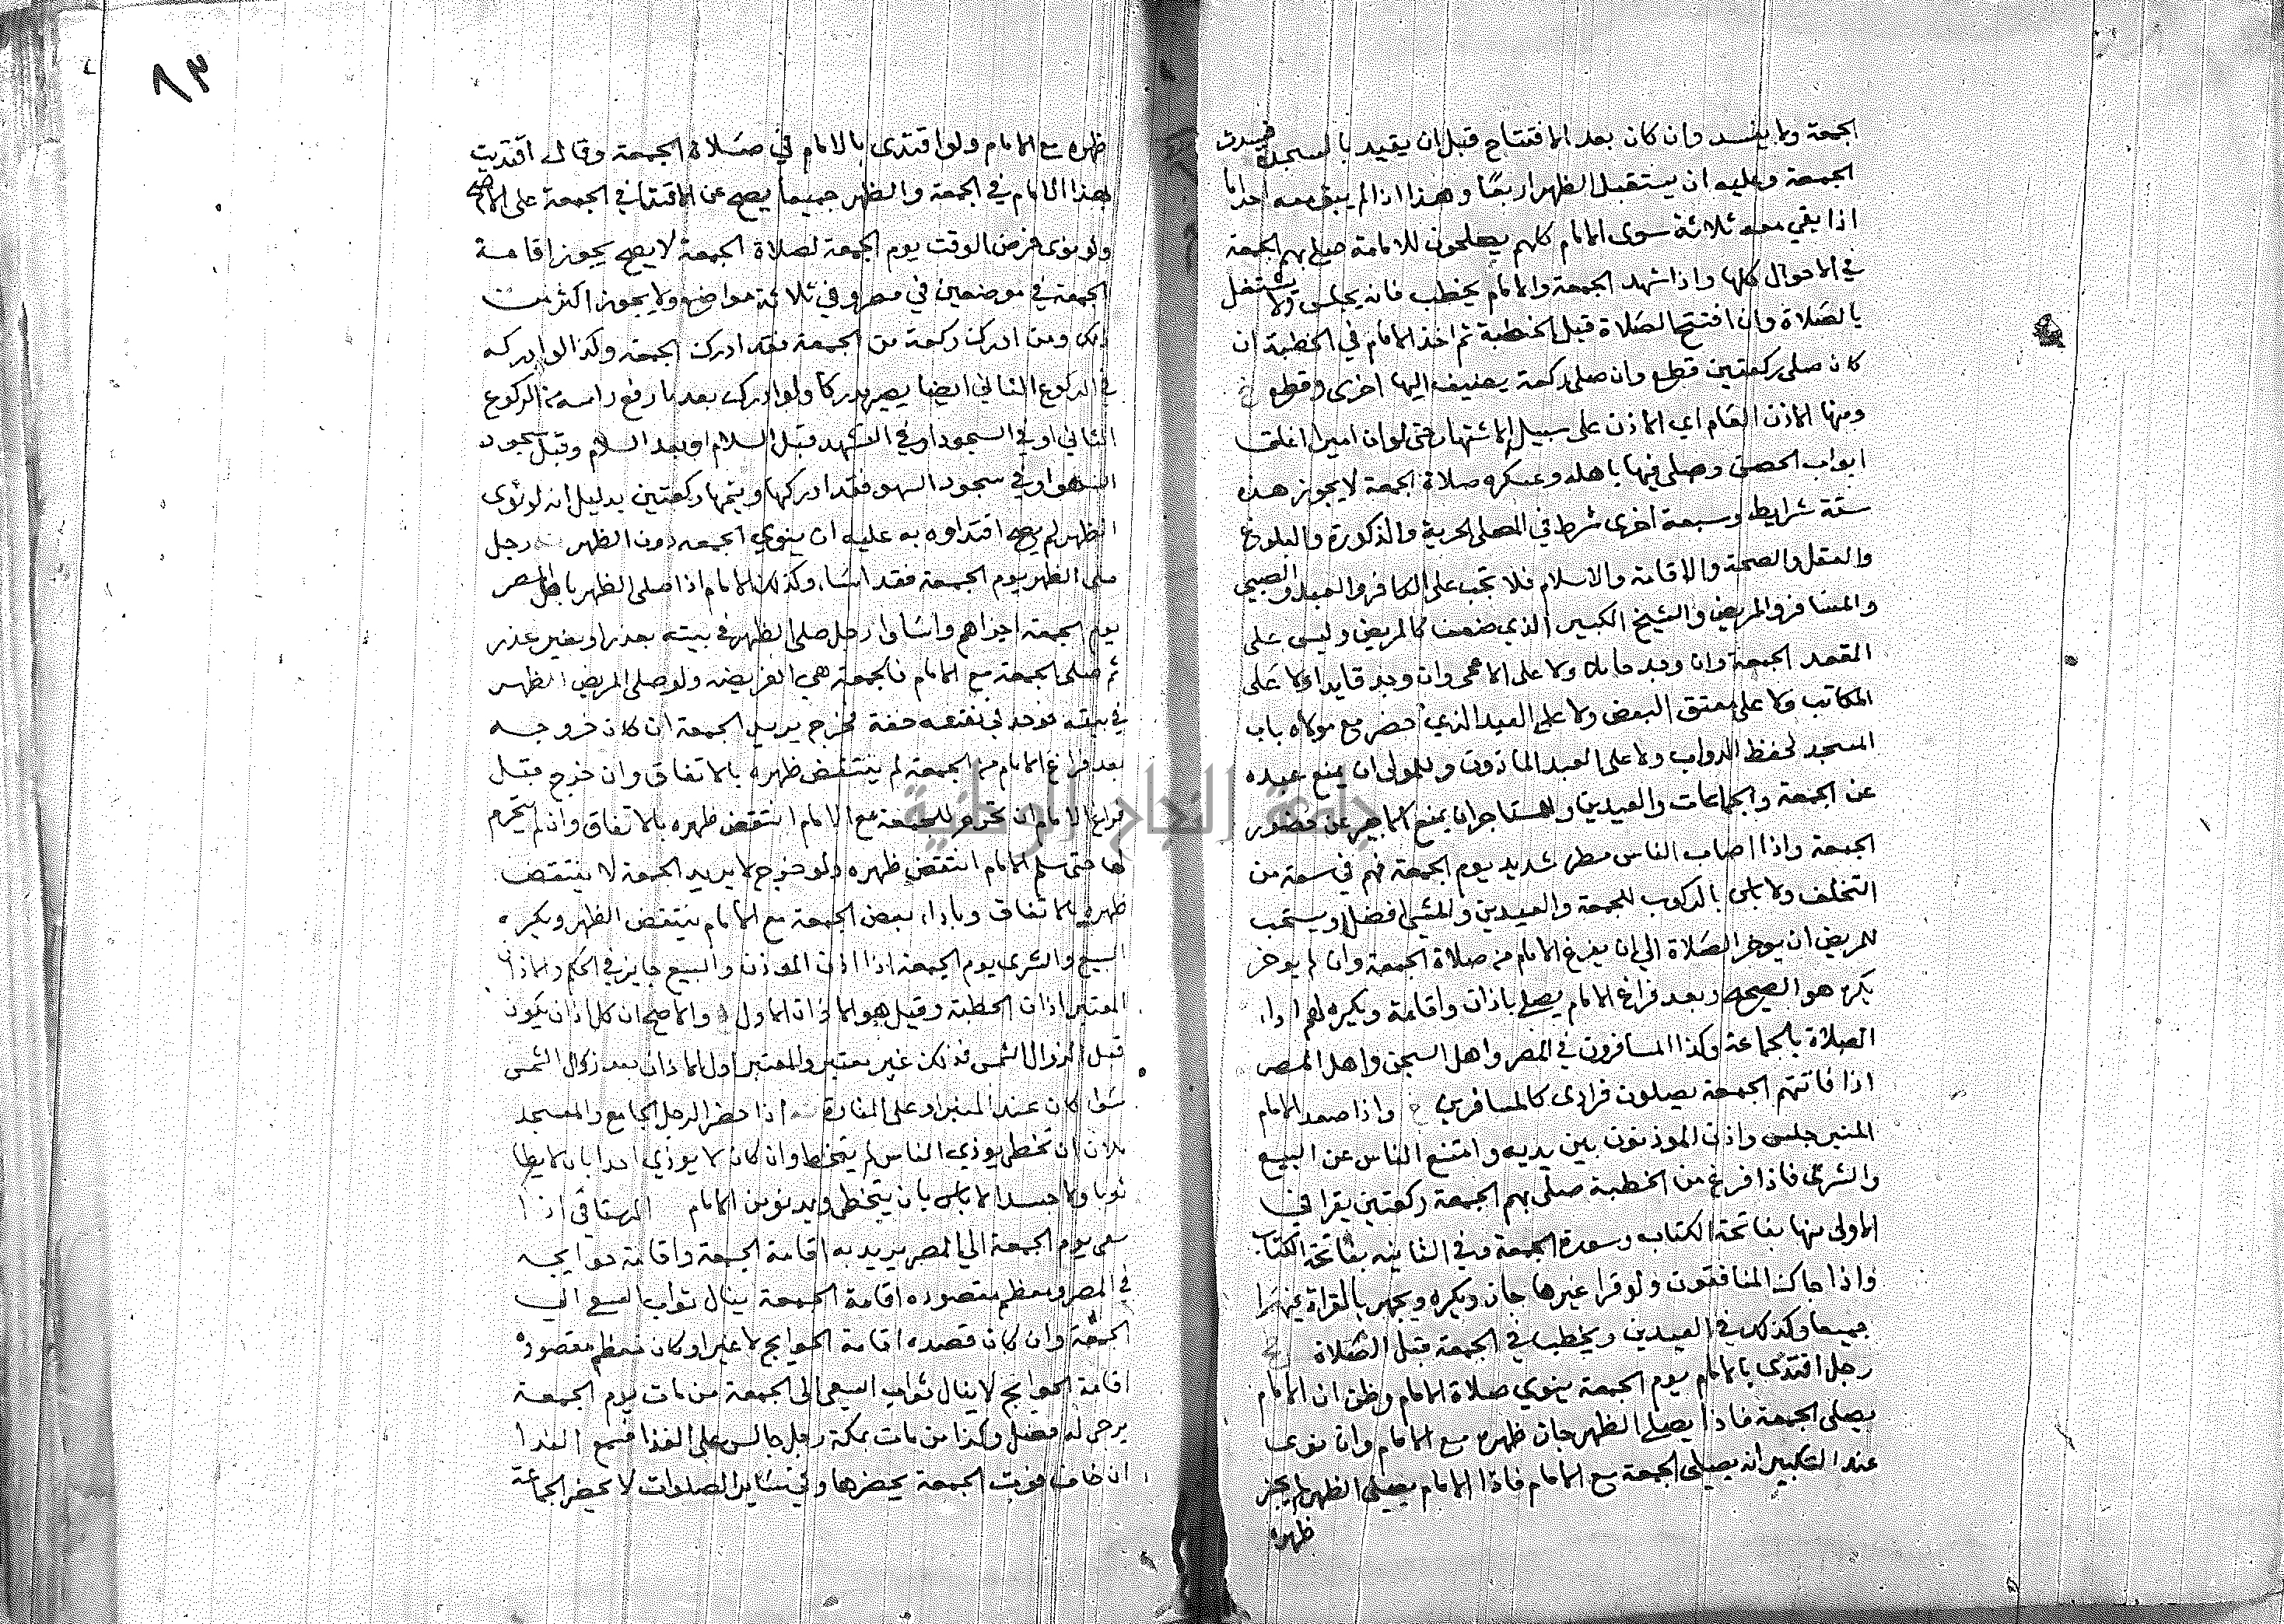 الجمعة ولا يفسد وان كان بعد الافتتاح قبل ان يقيد بالسجدة فسدت
الجمعة وعليه ان يستقبل الظهر اربعًا وهذا اذا لم يبق معه احد اما
اذا بقي معه ثلاثة سوى الامام كلهم يصلحون للامامة صلى بهم الجمعة
في الاحوال كلها واذا شهد الجمعة والامام يخطب فانه يجلس ولا يشتغل
بالصلاة وان افتتح الصلاة قبل الخطبة ثم اخذ الامام في الخطبة ان
كان صلى ركعتين قطع وان صلى ركعة يضيف اليها اخرى وقطع
ومنها الاذن العام اي الاذن على سبيل الاشتهار حتى لو ان اميرا اغلق
ابواب الحصن وصلى فيها باهله وعسكره صلاة الجمعة لا يجوز هذه
ستة شرايط وسبعة اخرى شرط في المصلى الحرية والذكورة والبلوغ
والعقل والصحة والاقامة والاسلام فلا تجب على الكافر والعبد والصبي
والمسافر والمريض والشيخ الكبير الذي ضعف كالمريض وليس على
المقعد الجمعة وان وجد حاملا ولا على الاعمى وان وجد قايدا ولا على
المكاتب ولا على معتق البعض ولا على العبد الذي حضر مع مولاه باب
المسجد لحفظ الدواب ولا على العبد الماذون وللمولى ان يمنع عبده
عن الجمعة والجماعات والعيدين وللمستاجر ان يمنع الاجير عن حضور
الجمعة واذا اصاب الناس مطر شديد يوم الجمعة فهم في سعة من
التخلف ولا باس بالركوب للجمعة والعيدين والمشي افضل ويستحب
للمريض ان يوخر الصلاة الى ان يفرغ الامام من صلاة الجمعة وان لم يوخر
يكره هو الصحيح وبعد فراغ الامام يصلي باذان واقامة ويكره لهم اداء
الصلاة بالجماعة وكذا المسافرون في المصر واهل السجن واهل المصر
اذا فاتتهم الجمعة يصلون فرادى كالمسافرين واذا صعد الامام
المنبر جلس واذن الموذنون بين يديه وامتنع الناس عن البيع
والشرى فاذا فرغ من الخطبة صلى بهم الجمعة ركعتين يقرا في
الاولى منها بفاتحة الكتاب وسورة الجمعة وفي الثانيه بفاتحة الكتاب
واذا جاك المنافقون ولو قرا غيرها جاز ويكره ويجهر بالقراة فيهما
جميعا وكذلك في العيدين ويخطب في الجمعة قبل الصلاة
رجل اقتدى بالامام يوم الجمعة ينوي صلاة الامام وظن ان الامام
يصلي الجمعة فاذا يصلي الظهر جاز ظهره مع الامام وان نوى
عند التكبير انه يصلي الجمعة مع الامام فاذا الامام يصلي الظهر لم يجز
ظهره
٨٣
ظهره مع الامام ولو اقتدى بالامام في صلاة الجمعة وقال اقتديت
بهذا الامام في الجمعة والظهر جميعا يصح عن الاقتدا في الجمعة على الاصح
ولو نوى فرض الوقت يوم الجمعة لصلاة الجمعة لا يصح يجوز اقامة
الجمعة في موضعين في مصر وفي ثلاثة مواضع ولا يجوز اكثر من
ذلك ومن ادرك ركعة من الجمعة فقد ادرك الجمعة وكذا لو ادركه
في الركوع الثاني ايضا يصير مدركا ولو ادرك بعد ما رفع راسه من الركوع
الثاني او في السجود او في التشهد قبل السلام او بعد السلام وقبل سجود
السهو او في سجود السهو فقد ادركها ويتمها ركعتين بدليل انه لو نوى
الظهر لم يصح اقتداوه به عليه ان ينوي الجمعه دون الظهر رجل
صلى الظهر يوم الجمعة فقد اسَا وكذلك الامام اذا صلى الظهر باهل المصر
يوم الجمعة اجزاهم واسَاوا رجل صلى الظهر في بيته بعذر او بغير عذر
ثم صلى الجمعة مع الامام فالجمعة هي الفريضه ولو صلى المريض الظهر
في بيته فوجد في نفسه خفة فخرج يريد الجمعة ان كان خروجه
بعد فراغ الامام من الجمعة لم ينتقض ظهره بالاتفاق وان خرج قبل
فراغ الامام ان تحرم للجمعة مع الامام انتقض ظهره بالاتفاق وان لم يتحرم
لها حتى سلم الامام انتقض ظهره ولو خرج لا يريد الجمعة لا ينتقض
ظهره بالاتفاق وباداء بعض الجمعة مع الامام ينتقض الظهر ويكره
البيع والشرى يوم الجمعة اذا اذن الموذن والبيع جايز في الحكم والاذان
المعتبر اذان الخطبة وقيل هو الاذان الاول والاصح ان كل اذان يكون
قبل الزوال الشمس فذلك غير معتبر والمعتبر اول الاذان بعد زوال الشمس
سَوا كان عند المنبر او على المنارة اذا حضر الرجل الجامع والمسجد
ملان ان تخطى يوذي الناس لم يتخط وان كان لا يوذي احدا بان لا يطا
ثوبا ولا جسدا لا باس بان يتخطى ويدنو من الامام الرستاقي اذا
سعى يوم الجمعة الى المصر يريد به اقامة الجمعة واقامة حوايجه
في المصر ومعظم مقصوده اقامة الجمعة ينال ثواب السعي الى
الجمعة وان كان قصده اقامة الحوايج لا غير او كان معظم مقصوده
اقامة الحوايج لا ينال ثواب السعي الى الجمعة من مات يوم الجمعة
يرجى له فضل وكذا من مات بمكة رجل جالس على الغذا فسمع الندا
ان خاف فوت الجمعة يحضرها وفي سَاير الصلوات لا يحضر الجماعة
جامعة النجاح الوطنية